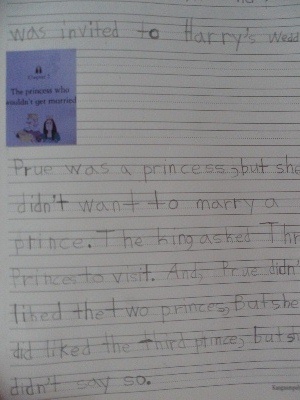 was invited to Harry's Wedd
Chapter 1
The princess who
wouldn't get married
Prue was a princess, but she
didn't want to marry a
prince. The king asked Thr
Princes to visit. And, Prue didn'
liked the two princes, But she
did liked the third prince, but s
didn't say so.